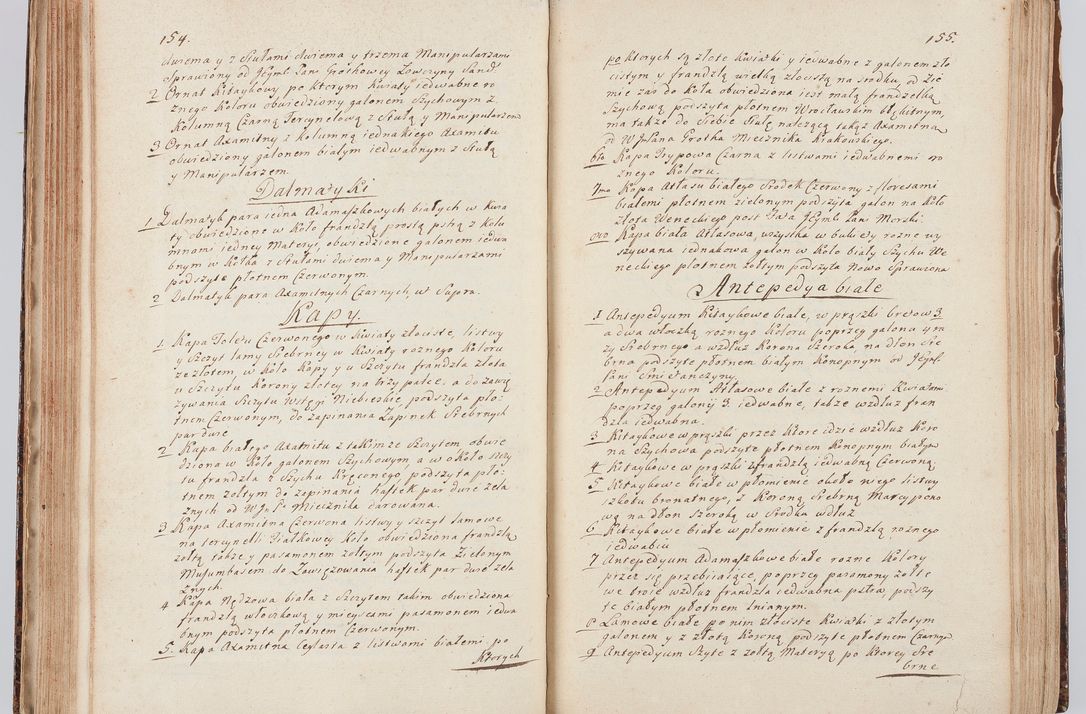 154.
dwiema y 2 Stułami dwiema y trzema Manipularzami
Sprawiony od JEymć Pani Grothowey Łowczyny Sand.
2 Ornat Kitaykowy po ktorym Kwiaty iedwabne ro
znego Koloru obwiedziony galonem Szychowym z
Kolumną Czarną Tercynelową z Stułą y Manipularzem
3 Ornat Axamitny z Kolumną iednakiego Axamitu
obwiedziony galonem białym iedwabnym z Stułą
y Manipularzem.
Dalmatyki
1 Dalmatyk para iedna Adamaszkowych białych w kwia
ty obwiedzione w Koło frandzlą prostą pstrą z Kolu
mnami iedney Materyi, obwiedzione galonem iedwa
bnym w Kółka z Stułami dwiema y Manipularzami
podszyte płotnem Czerwonym.
2 Dalmatyk para Axamitnych Czarnych, ut Supra.
Kapy.
1 Kapa Toletu Czerwonego w Kwiaty złociste, listwy
y Szczyt lamy Srebrney w Kwiaty roznego Koloru
ze złotem, w Koło Kapy y u Szczytu frandzla złota
u Szczytu Korony złotey na trzy palce, a do zawią
zywania Szczytu Wstęgi Niebieskie podszyta pło
tnem Czerwonym, do zapinania Zapinek Srebrnych
par dwie
2 Kapa białego Axamitu z takimże Szczytem obwie
dziona w Koło galonem Szychowym a w około szczy
tu frandzla z Szychu Kręconego podszyta pło
tnem żołtym do zapinania haftek par dwie zela
znych od W Jmci P. Miecznika darowana.
3 Kapa Axamitna Czerwona listwy y szczyt lamowe
na tercynelli Fiałkowey Koło obwiedziona frandzlą
zołtą takze y pasamonem zołtym podszyta Zielonym
Musumbasem do Zawięzowania haftek par dwie zela
znych.
4 Kapa Nędzowa biała z Szczytem takim obwiedziona
frandzlą włoczkową y mieyscami pasamonem iedwa
bnym podszyta płotnem Czerwonym.
5. Kapa Axamitna Ceglasta z listwami białemi, po
Ktorych
155.
po ktorych są złote Kwiatki y iedwabne z galonem zło
cistym y frandzlą wielką złocistą na srodku, od Zie
mie zas do Koła obwiedziona iest małą frandzelką
Szychową podszyta płotnem Wrocławskim błękitnym,
ma także do Siebie Stułę nalezącą takąż Axamitną
od W Jmć Pana Grotha Miecznika Krakowskiego.
6to Kapa Trypowa Czarna z listwami iedwabnemi ro
znego Koloru.
7mo Kapa Atłasu białego Srodek Czerwony z floresami
białemi płotnem zielonym podszyta galon na Koło
złota Weneckiego post Fata JEymć Pani Morski
8vo Kapa biała Atłasowa, wszystka w bukiety rozne wy
szywana iednakowa galon w Koło biały Szychu We
neckiego płotnem żołtym podszyta Nowo Sprawiona
Antepedya białe
1 Antepedyum Kitaykowe białe, w prązki bretow 3
a dwa włoczką roznego Koloru poprzeg galonu Szyn
zy Srebrnego a wzdłuz Korona Szeroka na dłon Sre
brna podszyte płotnem białym Konopnym od JEymć
Pani Smietanczyny
2 Antepedyum Atłasowe białe z roznemi Kwiatami
poprzeg galony 3. iedwabne, także wzdłuz fran
dzla iedwabna.
3 Kitaykowe w prązki przez ktore idzie wzdłuz Koro
na Szychowa podszyte płotnem Konopnym białym
4 Kitaykowe w prązki z frandzlą iedwabną Czerwoną
5. Kitaykowe białe w płomienie około niego listwy
izkobu brunatnego, z Koroną Srebrną Marcypano
wą na dłon Szeroką w Srodku wdłuz
6 Kitaykowe białe w płomienie z frandzlą roznego
iedwabiu
7 Antepedyum Adamaszkowe białe rozne Kolory
przez się przebiiaiące, poprzeg pasamony żołte
we troie wzdłuz frandzla iedwabna pstra podszy
te białym płotnem lnianym.
8 Lamowe białe po nim złociste Kwiatki z złotym
galonem y z złotą Koroną podszyte płotnem Czarnym
9 Antepedyum Szyte z zołtą Materyą po ktorey Sre
brne